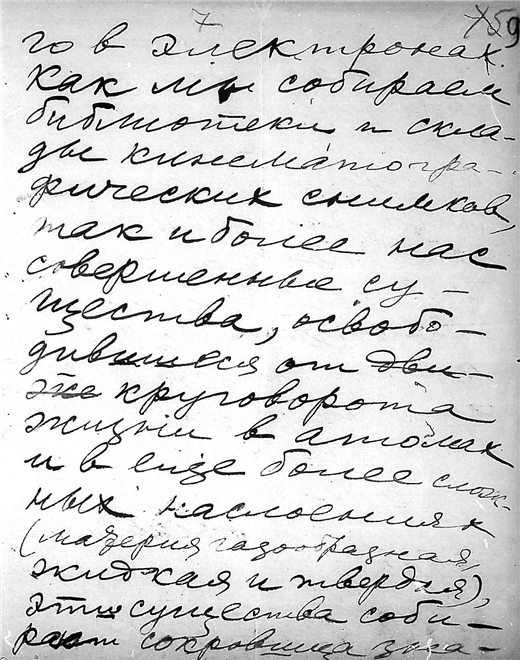 7 159
го в электронах.
Как мы собираем
библиотеки и скла-
ды кинематогра-
фических снимков,
так и более нас
совершенные су-
щества, освобо-
дившиеся от
круговорота
жизни в атомах
и в еще более слож-
ных наслоениях
(материя газообразная,
жидкая и твердая),
эти существа соби-
рают сокровища